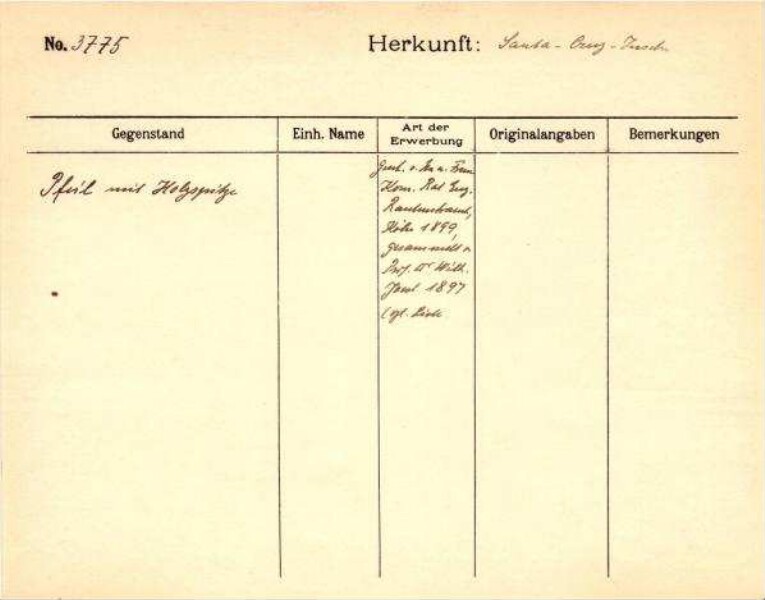 No. 3775
Herkunft: Santa-Cruz-Inseln
Gegenstand
Einh. Name
Art der
Erwerbung
Originalangaben
Bemerkungen
Pfeil mit Holzspitze
Gesch. v. Frau
Kom. Rat Eug.
Rautenstrauch,
Köln 1899,
gesammelt v.
Prof. Dr Wilh.
Joest 1897
(vgl. Liste